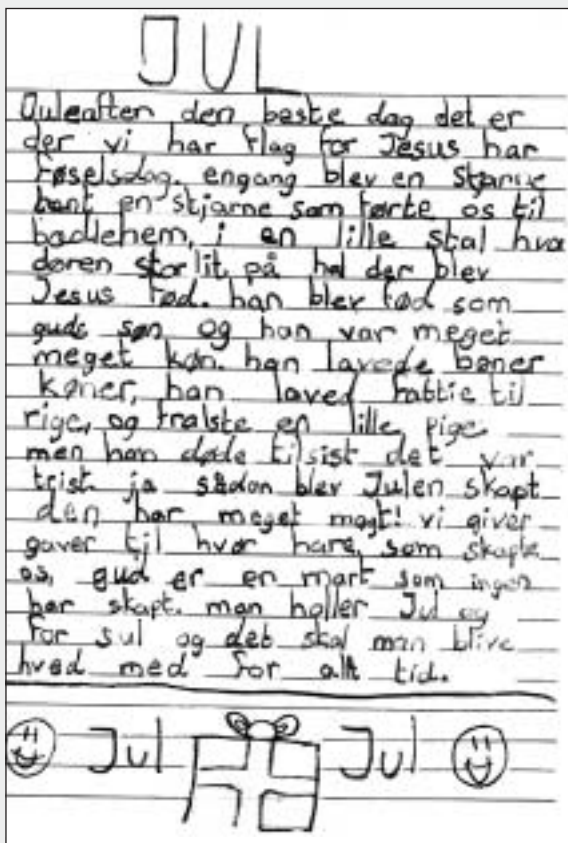 JUL
Juleaften den beste dag det er
der vi har flag for Jesus har
føselsdag. engang blev en stjarne
tent en stjarne som førte os til
badlehem, i en lille stal hvor
døren stor lit på hel der blev
Jesus fød. han blev fød som
guds søn og han var meget
meget køn. han lavede bøner
køner, han laved fattie til
rige, og fralste en lille pige
men han døde tilsist det var
trist. ja sådan blev Julen skapt
den har meget magt! vi giver
gaver til hvar hare, som skapte
os, gud er en mart som ingen
har skapt. man holler Jul og
for sul og det skal man blive
hved med for alt tid.
Jul Jul